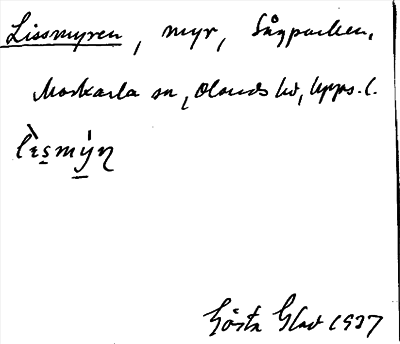 Lissmyren, myr, Sågparken,
Morkarla sn, Olands hd, Upps. l.
lɪ̀smýn
Gösta Glad 1937